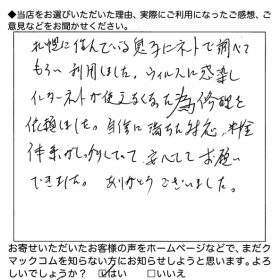 ◆当店をお選びいただいた理由、実際にご利用になったご感想、ご
意見などをお聞かせください。
札幌に住んでいる息子にネットで調べて
もらい利用しました。ウィルスに感染し
インターネットが使えなくなった為修理を
依頼しました。自信に満ちた対応、料金
体系がしっかりしていて、安心してお願い
できました。ありがとうございました。
お寄せいただいたお客様の声をホームページなどで、まだク
マックコムを知らない方にお知らせしようと思います。よろ
しいでしょうか？ ☑はい □いいえ